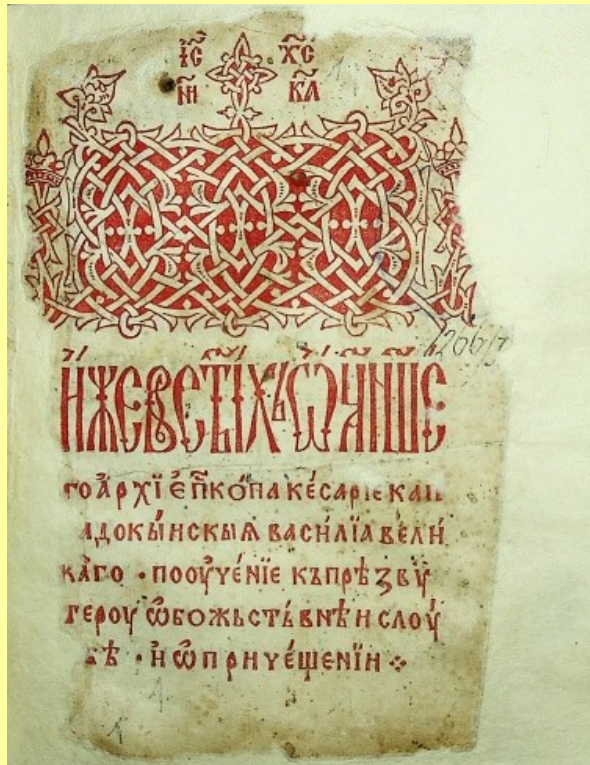 І҃С Х҃С
Н҃И К҃А
И҆́ЖЕ В СТ҃Ы́ХЬ Ѡ҆Ц҃А Н҃ШЕ
го а҆рхїе҆п҃копа ке́сарїе кап
адокы́нскыꙗ васи́лїа вели́
ка́го · поѹ҆че́нїе къ прѣзвѵ́
тероу ѡ҆ божьстъ́внѣи слоу́
бѣ · и҆ ѡ҆ причеще́нїи ⁘